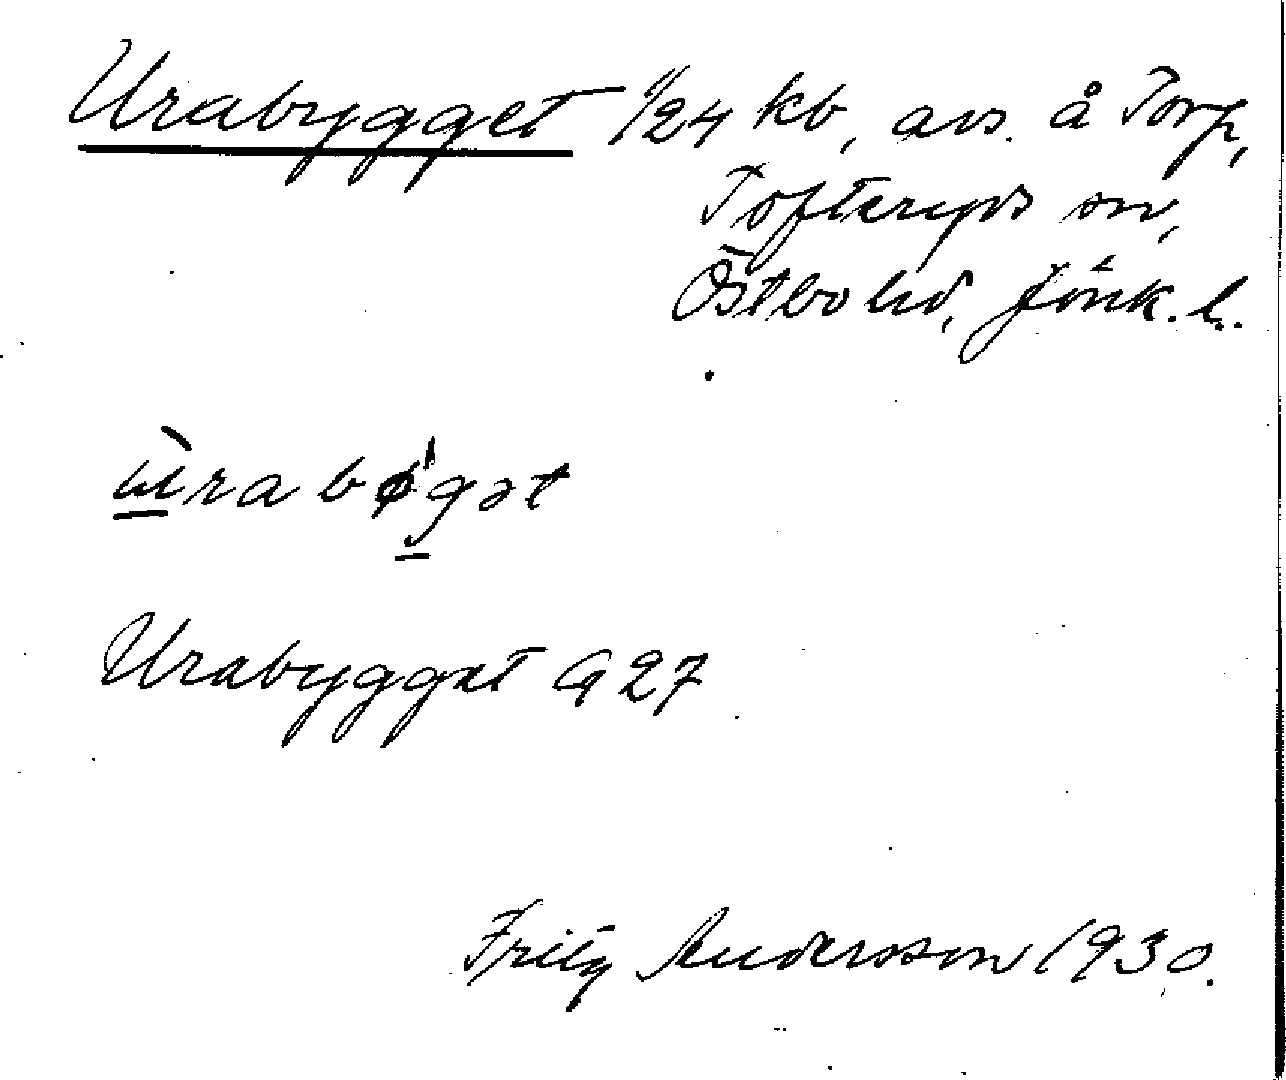 Urabygget 1/24 kb, avs. å Torp,
Tofteryds sn,
Östbo hd, Jönk. l.
ùrabøgət
Urabygget G 27
Fritz Andersson 1930.